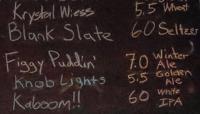 Krystal Wiess 5.5 Wheat
Blank Slate 6.0 Seltzer
Figgy Puddin' 7.0 Winter Ale
Knob Lights 5.5 Golden Ale
Kaboom!! 6.0 White IPA